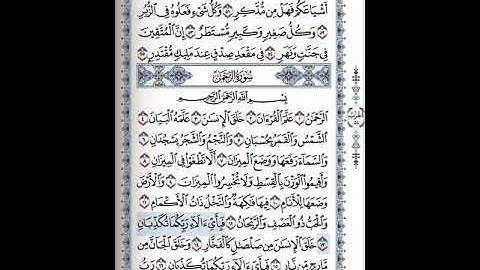 أَشْيَاعَكُمْ فَهَلْ مِن مُّدَّكِرٍ ٥١ وَكُلُّ شَيْءٍ فَعَلُوهُ فِي الزُّبُرِ
٥٢ وَكُلُّ صَغِيرٍ وَكَبِيرٍ مُّسْتَطَرٌ ٥٣ إِنَّ الْمُتَّقِينَ
فِي جَنَّاتٍ وَنَهَرٍ ٥٤ فِي مَقْعَدِ صِدْقٍ عِندَ مَلِيكٍ مُّقْتَدِرٍ ٥٥
سُورَةُ الرَّحْمَٰن
بِسْمِ اللَّهِ الرَّحْمَٰنِ الرَّحِيمِ
الرَّحْمَٰنُ ١ عَلَّمَ الْقُرْءَانَ ٢ خَلَقَ الْإِنسَٰنَ ٣ عَلَّمَهُ الْبَيَانَ ٤
الشَّمْسُ وَالْقَمَرُ بِحُسْبَانٍ ٥ وَالنَّجْمُ وَالشَّجَرُ يَسْجُدَانِ ٦
وَالسَّمَاءَ رَفَعَهَا وَوَضَعَ الْمِيزَانَ ٧ أَلَّا تَطْغَوْا فِي الْمِيزَانِ ٨
وَأَقِيمُوا الْوَزْنَ بِالْقِسْطِ وَلَا تُخْسِرُوا الْمِيزَانَ ٩ وَالْأَرْضَ
وَضَعَهَا لِلْأَنَامِ ١٠ فِيهَا فَٰكِهَةٌ وَالنَّخْلُ ذَاتُ الْأَكْمَامِ ١١
وَالْحَبُّ ذُو الْعَصْفِ وَالرَّيْحَانُ ١٢ فَبِأَيِّ ءَالَاءِ رَبِّكُمَا تُكَذِّبَانِ
١٣ خَلَقَ الْإِنسَٰنَ مِن صَلْصَٰلٍ كَالْفَخَّارِ ١٤ وَخَلَقَ الْجَانَّ مِن
مَّارِجٍ مِّن نَّارٍ ١٥ فَبِأَيِّ ءَالَاءِ رَبِّكُمَا تُكَذِّبَانِ ١٦ رَبُّ